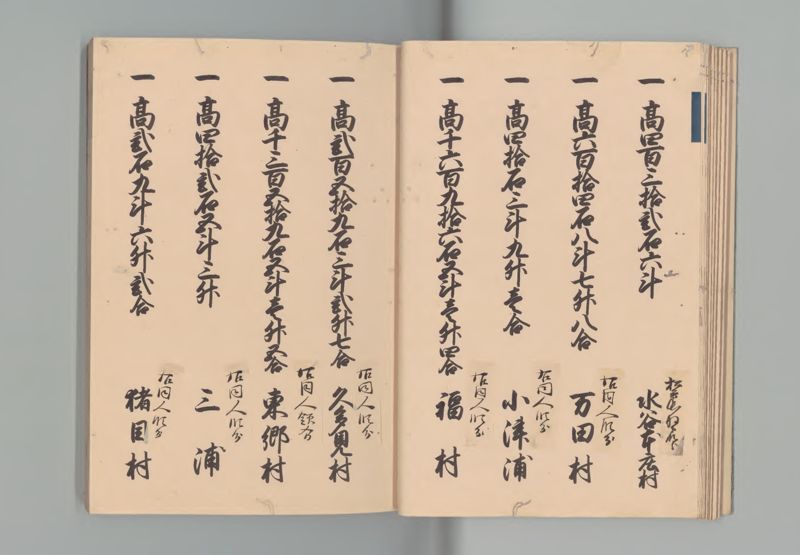 一 高四百三拾弐石六斗
水谷本庄村
一 高六百拾四石八斗七升八合
右同人
万田村
一 高四拾石三斗九升壱合
右同人
小津浦
一 高千六百九拾六石五斗壱升四合
右同人
福村
一 高弐百五拾九石三斗弐升七合
右同人
久多見村
一 高千三百五拾九石五斗壱升五合
右同人
東郷村
一 高四拾弐石五斗三升
右同人
三浦
一 高弐石九斗六升弐合
右同人
猪目村